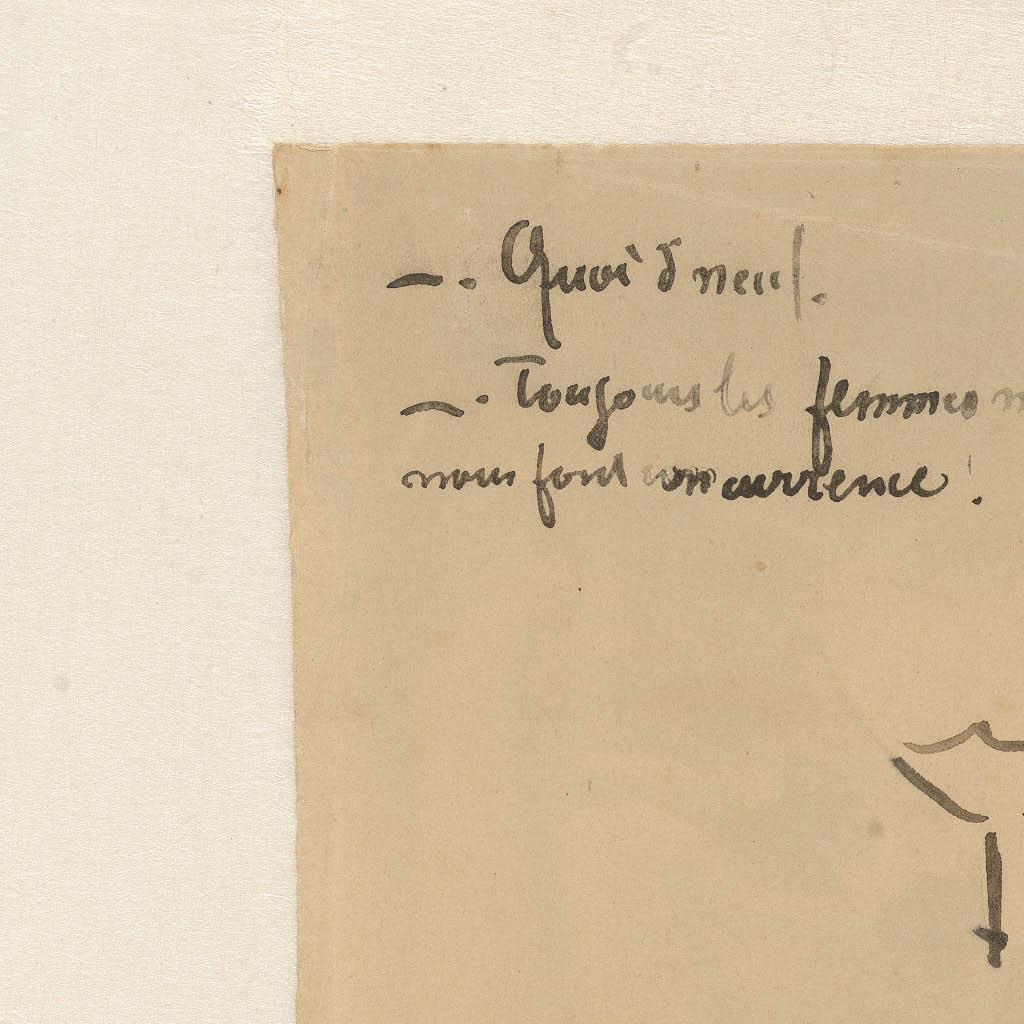 —. Quoi d neuf.
—. Toujours les femmes
nous font concurrence !